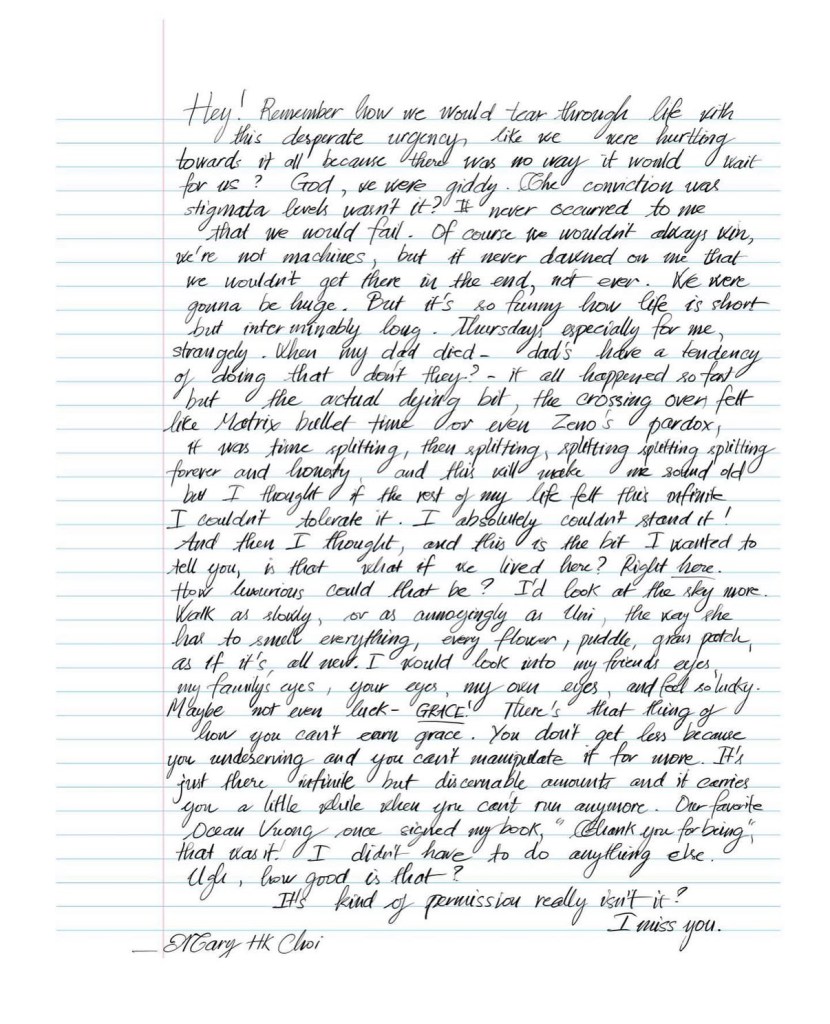 Hey! Remember how we would tear through life with
this desperate urgency, like we were hurtling
towards it all because there was no way it would wait
for us? God, we were giddy. The conviction was
stigmata levels wasn't it? It never occurred to me
that we would fail. Of course we wouldn't always win,
we're not machines, but it never dawned on me that
we wouldn't get there in the end, not ever. We were
gonna be huge. But it's so funny how life is short
but interminably long. Thursdays especially for me,
strangely. When my dad died - dad's have a tendency
of doing that don't they? - it all happened so fast
but the actual dying bit, the crossing over felt
like Matrix bullet time or even Zeno's pardox,
it was time splitting, then splitting, splitting splitting splitting
forever and honesty, and this will make me sound old
but I thought if the rest of my life felt this infinite
I couldn't tolerate it. I absolutely couldn't stand it!
And then I thought, and this is the bit I wanted to
tell you, is that what if we lived here? Right here.
How luxurious could that be? I'd look at the sky more.
Walk as slowly, or as annoyingly as Uni, the way she
has to smell everything, every flower, puddle, grass patch,
as if it's all new. I would look into my friends eyes,
my family's eyes, your eyes, my own eyes, and feel so lucky.
Maybe not even luck - GRACE! There's that thing of
how you can't earn grace. You don't get less because
you undeserving and you can't manipulate it for more. It's
just there infinite but discernable amounts and it carries
you a little while when you can't run anymore. Our favorite
Ocean Vuong once signed my book, "Thank you for being",
that was it! I didn't have to do anything else.
Ugh, how good is that?
It's kind of permission really isn't it?
I miss you.
_ Mary HK Choi